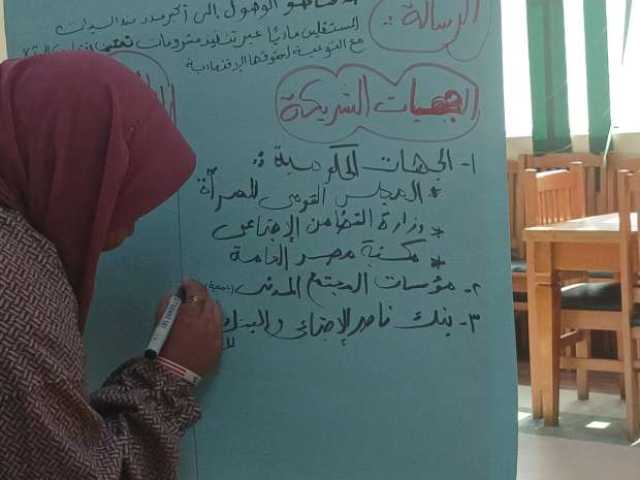 الرسالة :
الوصول إلى أكبر عدد من السيدات
المستقلين ماديًا عبر تنفيذ مشروعات
مع التوعية لحقوقها الإقتصادية
الجهات الشريكة
١- الجهات الحكومية :
* المجلس القومى للمرأة
* وزارة التضامن الإجتماعى
* مكتبة مصر العامة
٢- مؤسسات المجتمع المدنى
٣- بنك ناصر الإجتماعى و